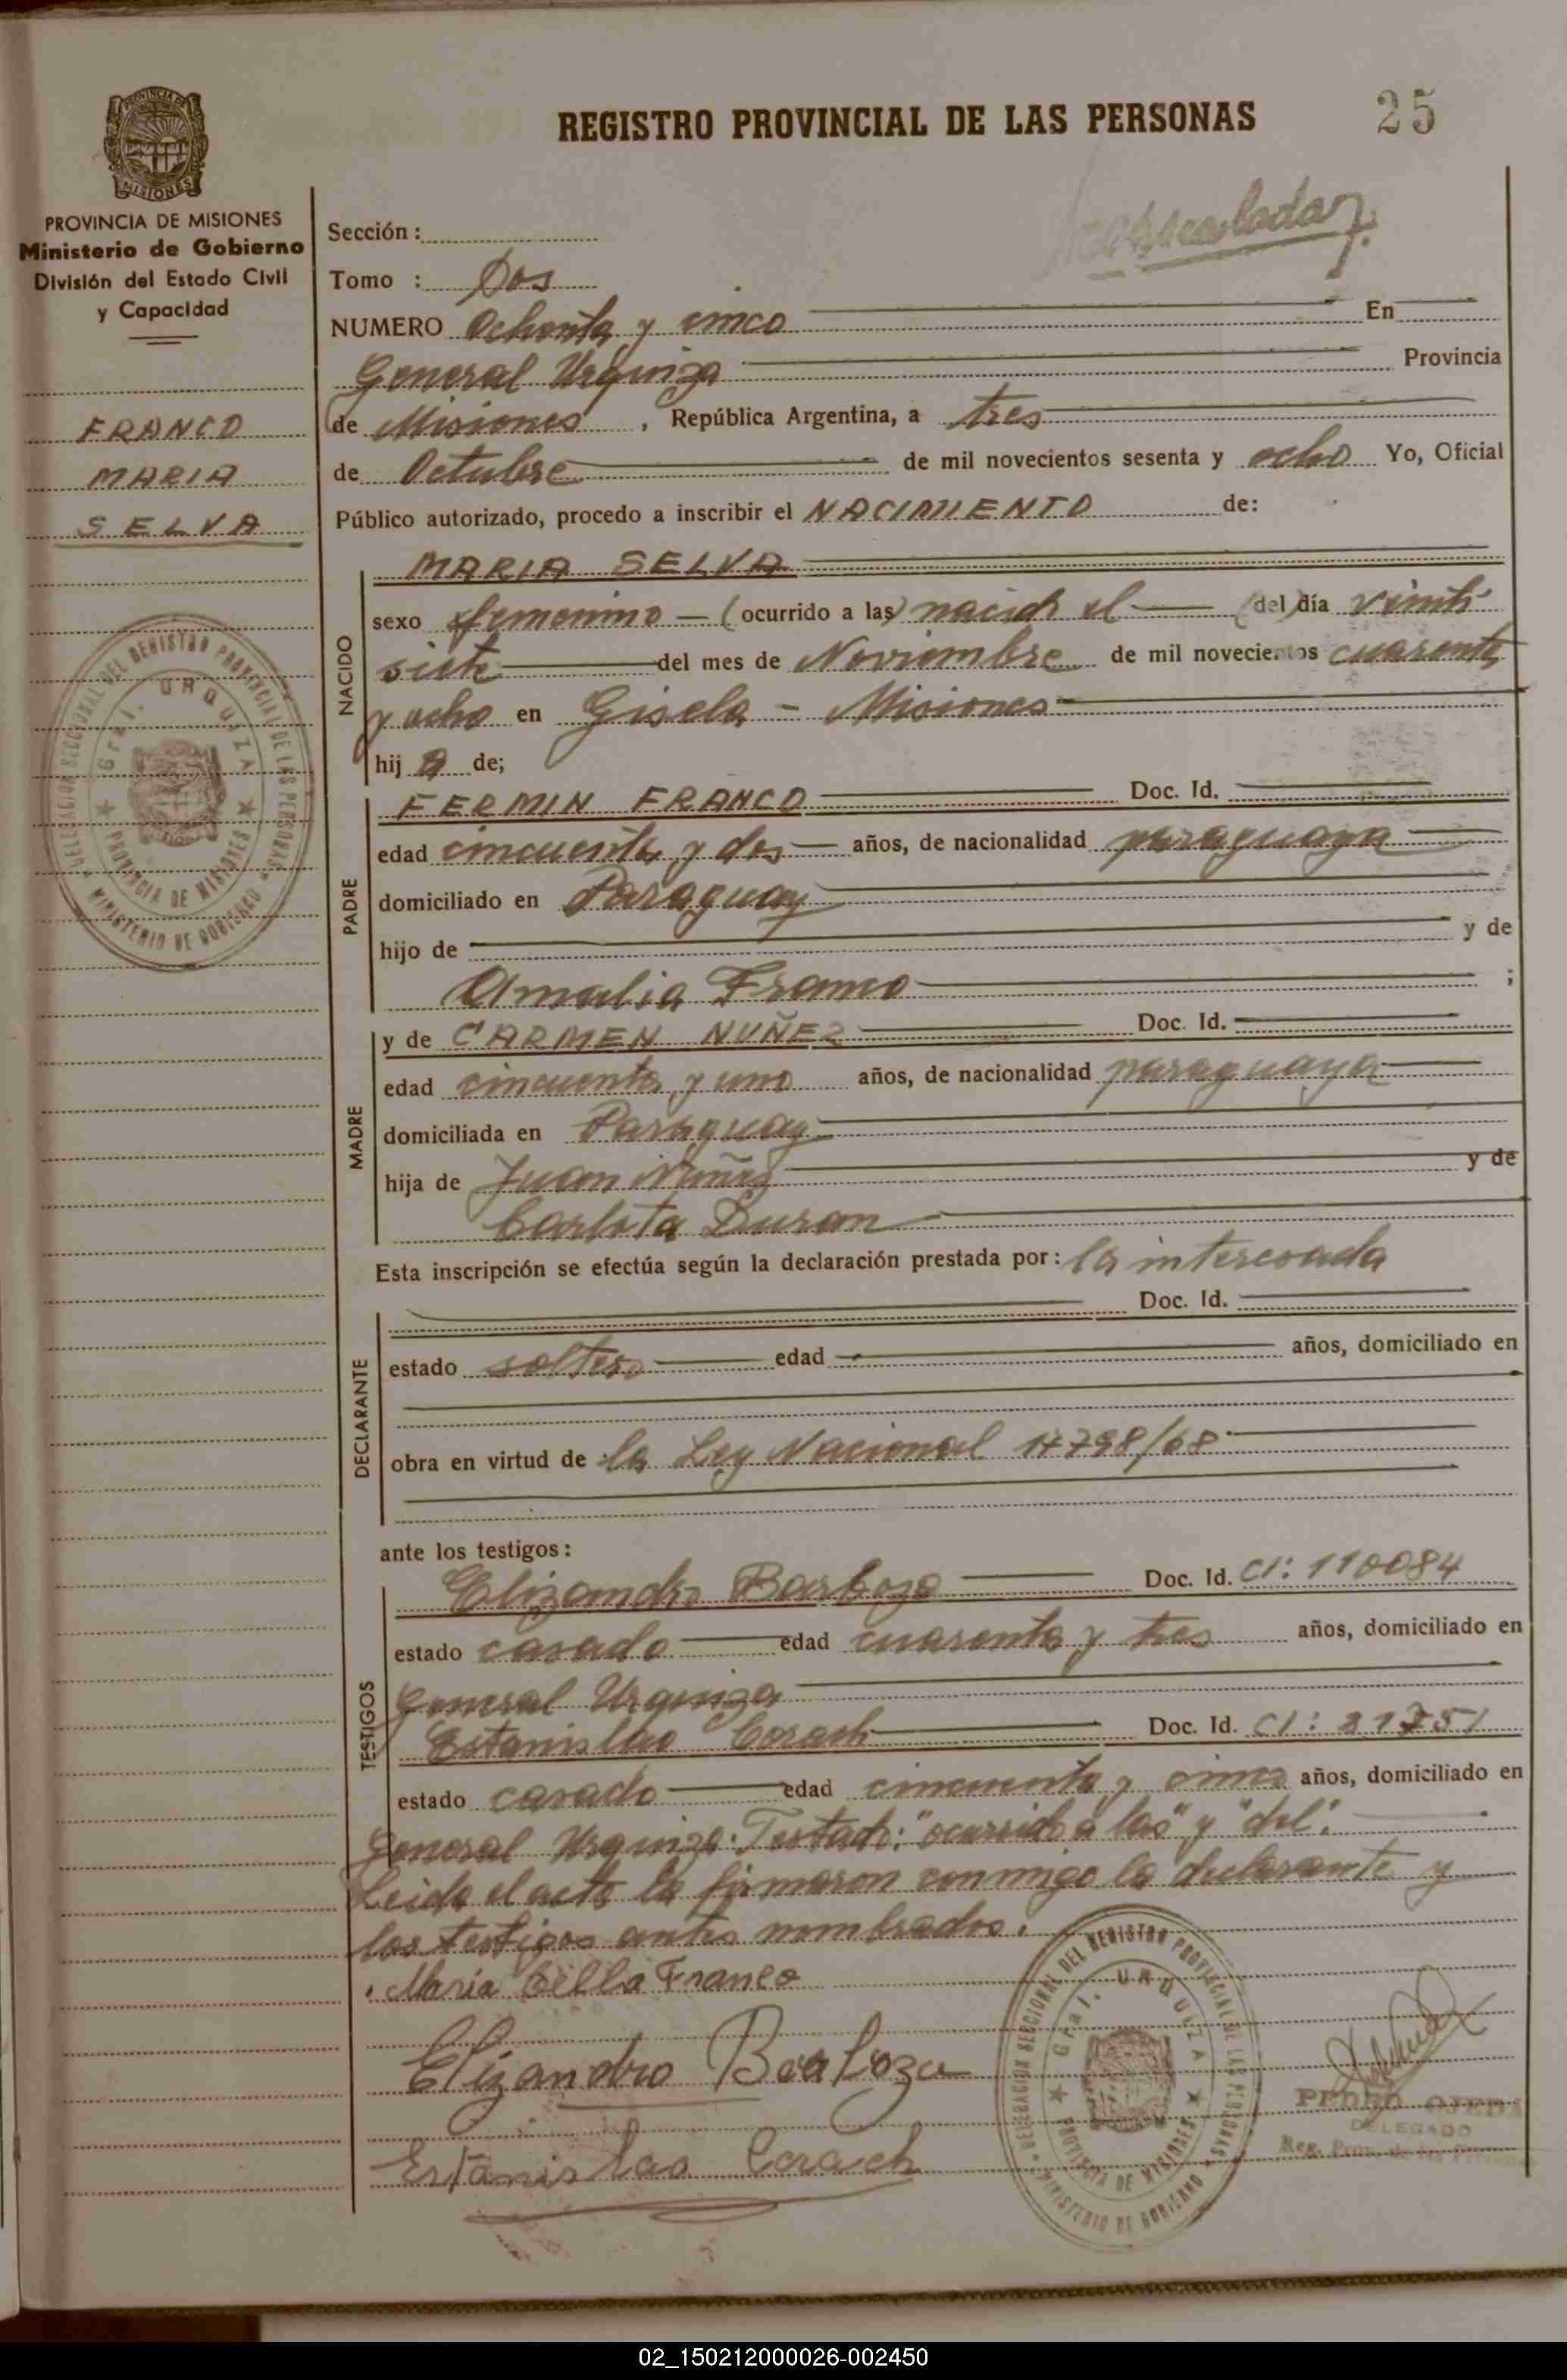 REGISTRO PROVINCIAL DE LAS PERSONAS
25
MISIONES
PROVINCIA DE MISIONES
Ministerio de Gobierno
División del Estado Civil
y Capacidad
FRANCO
MARIA
SELVA
Sección :
Tomo : Dos
NUMERO Ochenta y cinco En
General Urquiza Provincia
de Misiones , República Argentina, a tres
de Octubre de mil novecientos sesenta y ocho Yo, Oficial
Público autorizado, procedo a inscribir el NACIMIENTO de:
NACIDO
MARIA SELVA
sexo femenino — (ocurrido a las) nacida el — (del) día vinti
siete del mes de Noviembre de mil novecientos cuarenta
y ocho en Gisela - Misiones
hij a de;
PADRE
FERMIN FRANCO Doc. Id.
edad cincuenta y dos años, de nacionalidad paraguaya
domiciliado en Paraguay
hijo de y de
Amalia Franco ;
MADRE
y de CARMEN NUÑEZ Doc. Id.
edad cincuenta y uno años, de nacionalidad paraguaya
domiciliada en Paraguay
hija de Juan Nuñez y de
Carlota Duran
Esta inscripción se efectúa según la declaración prestada por: la interesada
DECLARANTE
Doc. Id.
estado soltera edad años, domiciliado en
obra en virtud de la Ley Nacional 17798/68
ante los testigos:
TESTIGOS
Elizandro Barboza Doc. Id. CI: 110084
estado casado edad cuarenta y tres años, domiciliado en
General Urquiza
Estanislao Corach Doc. Id. CI:
estado casado edad cincuenta y años, domiciliado en
General Urquiza. Testado: "ocurrido a las" y "del".
Leida el acta la firmaron conmigo la declarante y
los testigos antes nombrados.
Maria Cella Franco
Elizandro Barboza
Estanislao Corach
DELEGACION SECCIONAL DEL REGISTRO PROVINCIAL DE LAS PERSONAS
Gral. URQUIZA
PROVINCIA DE MISIONES
MINISTERIO DE GOBIERNO
PEDRO OJEDA
DELEGADO
Reg. Prov. de las Personas
02_150212000026-002450